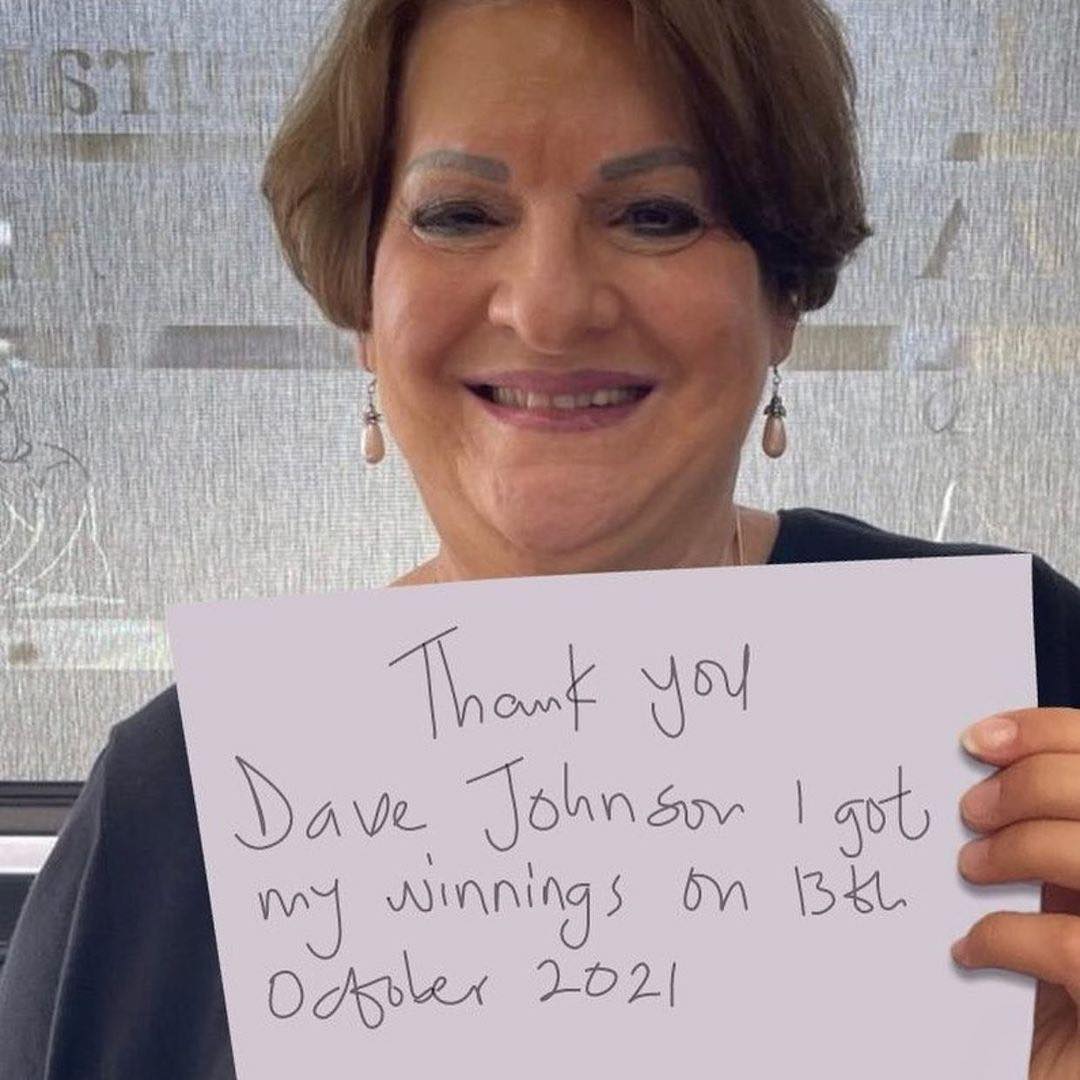 Thank you
Dave Johnson I got
my winnings on 13th
October 2021